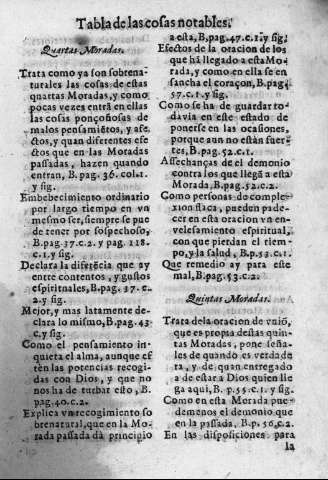 Tabla de las cosas notables.
Quartas Moradas.
Trata como ya son sobrena-
turales las cosas de estas
quartas Moradas, y como
pocas vezes entrā en ellas
las cosas ponçoñosas de
malos pensamiētos, y afe-
ctos, y quan diferentes efe-
ctos que en las Moradas
passadas, hazen quando
entran, B.pag. 36. col.1.
y sig.
Embebecimiento ordinario
por largo tiempo en vn
mesmo ser, siempre se pue
de tener por sospechoso,
B.pag.37.c.2. y pag. 118.
c.1.y sig.
Declara la diferēcia que ay
entre contentos, y gustos
espirituales, B.pag. 37. c.
2.y sig.
Mejor, y mas latamente de-
clara lo mismo, B.pag.43.
c.y sig.
Como el pensamiento in-
quieta el alma, aunque es
tèn las potencias recogi-
das con Dios, y que no
nos ha de turbar esto, B.
pag.40.c.2.
Explica vn recogimiento so
brenatural, que en la Mo-
rada passada dà principio
a esta, B.pag.47.c.1.y sig.
Efectos de la oracion de los
que hà llegado a esta Mo-
rada, y como en ella se en
sancha el coraçon, B.pag.
57.c.1. y sig.
Como se ha de guardar to-
davia en este estado de
ponerse en las ocasiones,
porque aun no estàn fuer-
tes, B.pag.52.c.1.
Assechanças de el demonio
contra los que llegā a esta
Morada, B.pag.52.c.2.
Como personas de comple-
xion flaca, pueden pade-
cer en esta oracion vn en-
velesamiento espiritual,
con que pierdan el tiem-
po, y la salud, B.p.53.c.1.
Que remedio ay para este
mal, B.pag.53.c.2.
Quintas Moradas.
Trata de la oracion de vniō,
que es propia destas quin-
tas Moradas, pone señа-
les de quando es verdade
ra, y de quan entregado
a de estar a Dios quien lle
ga aqui, B. p.55.c.1. y sig.
Como en esta Morada pue-
demenos el demonio que
en la passada, B.p. 56.c.2.
En las disposiciones para
la